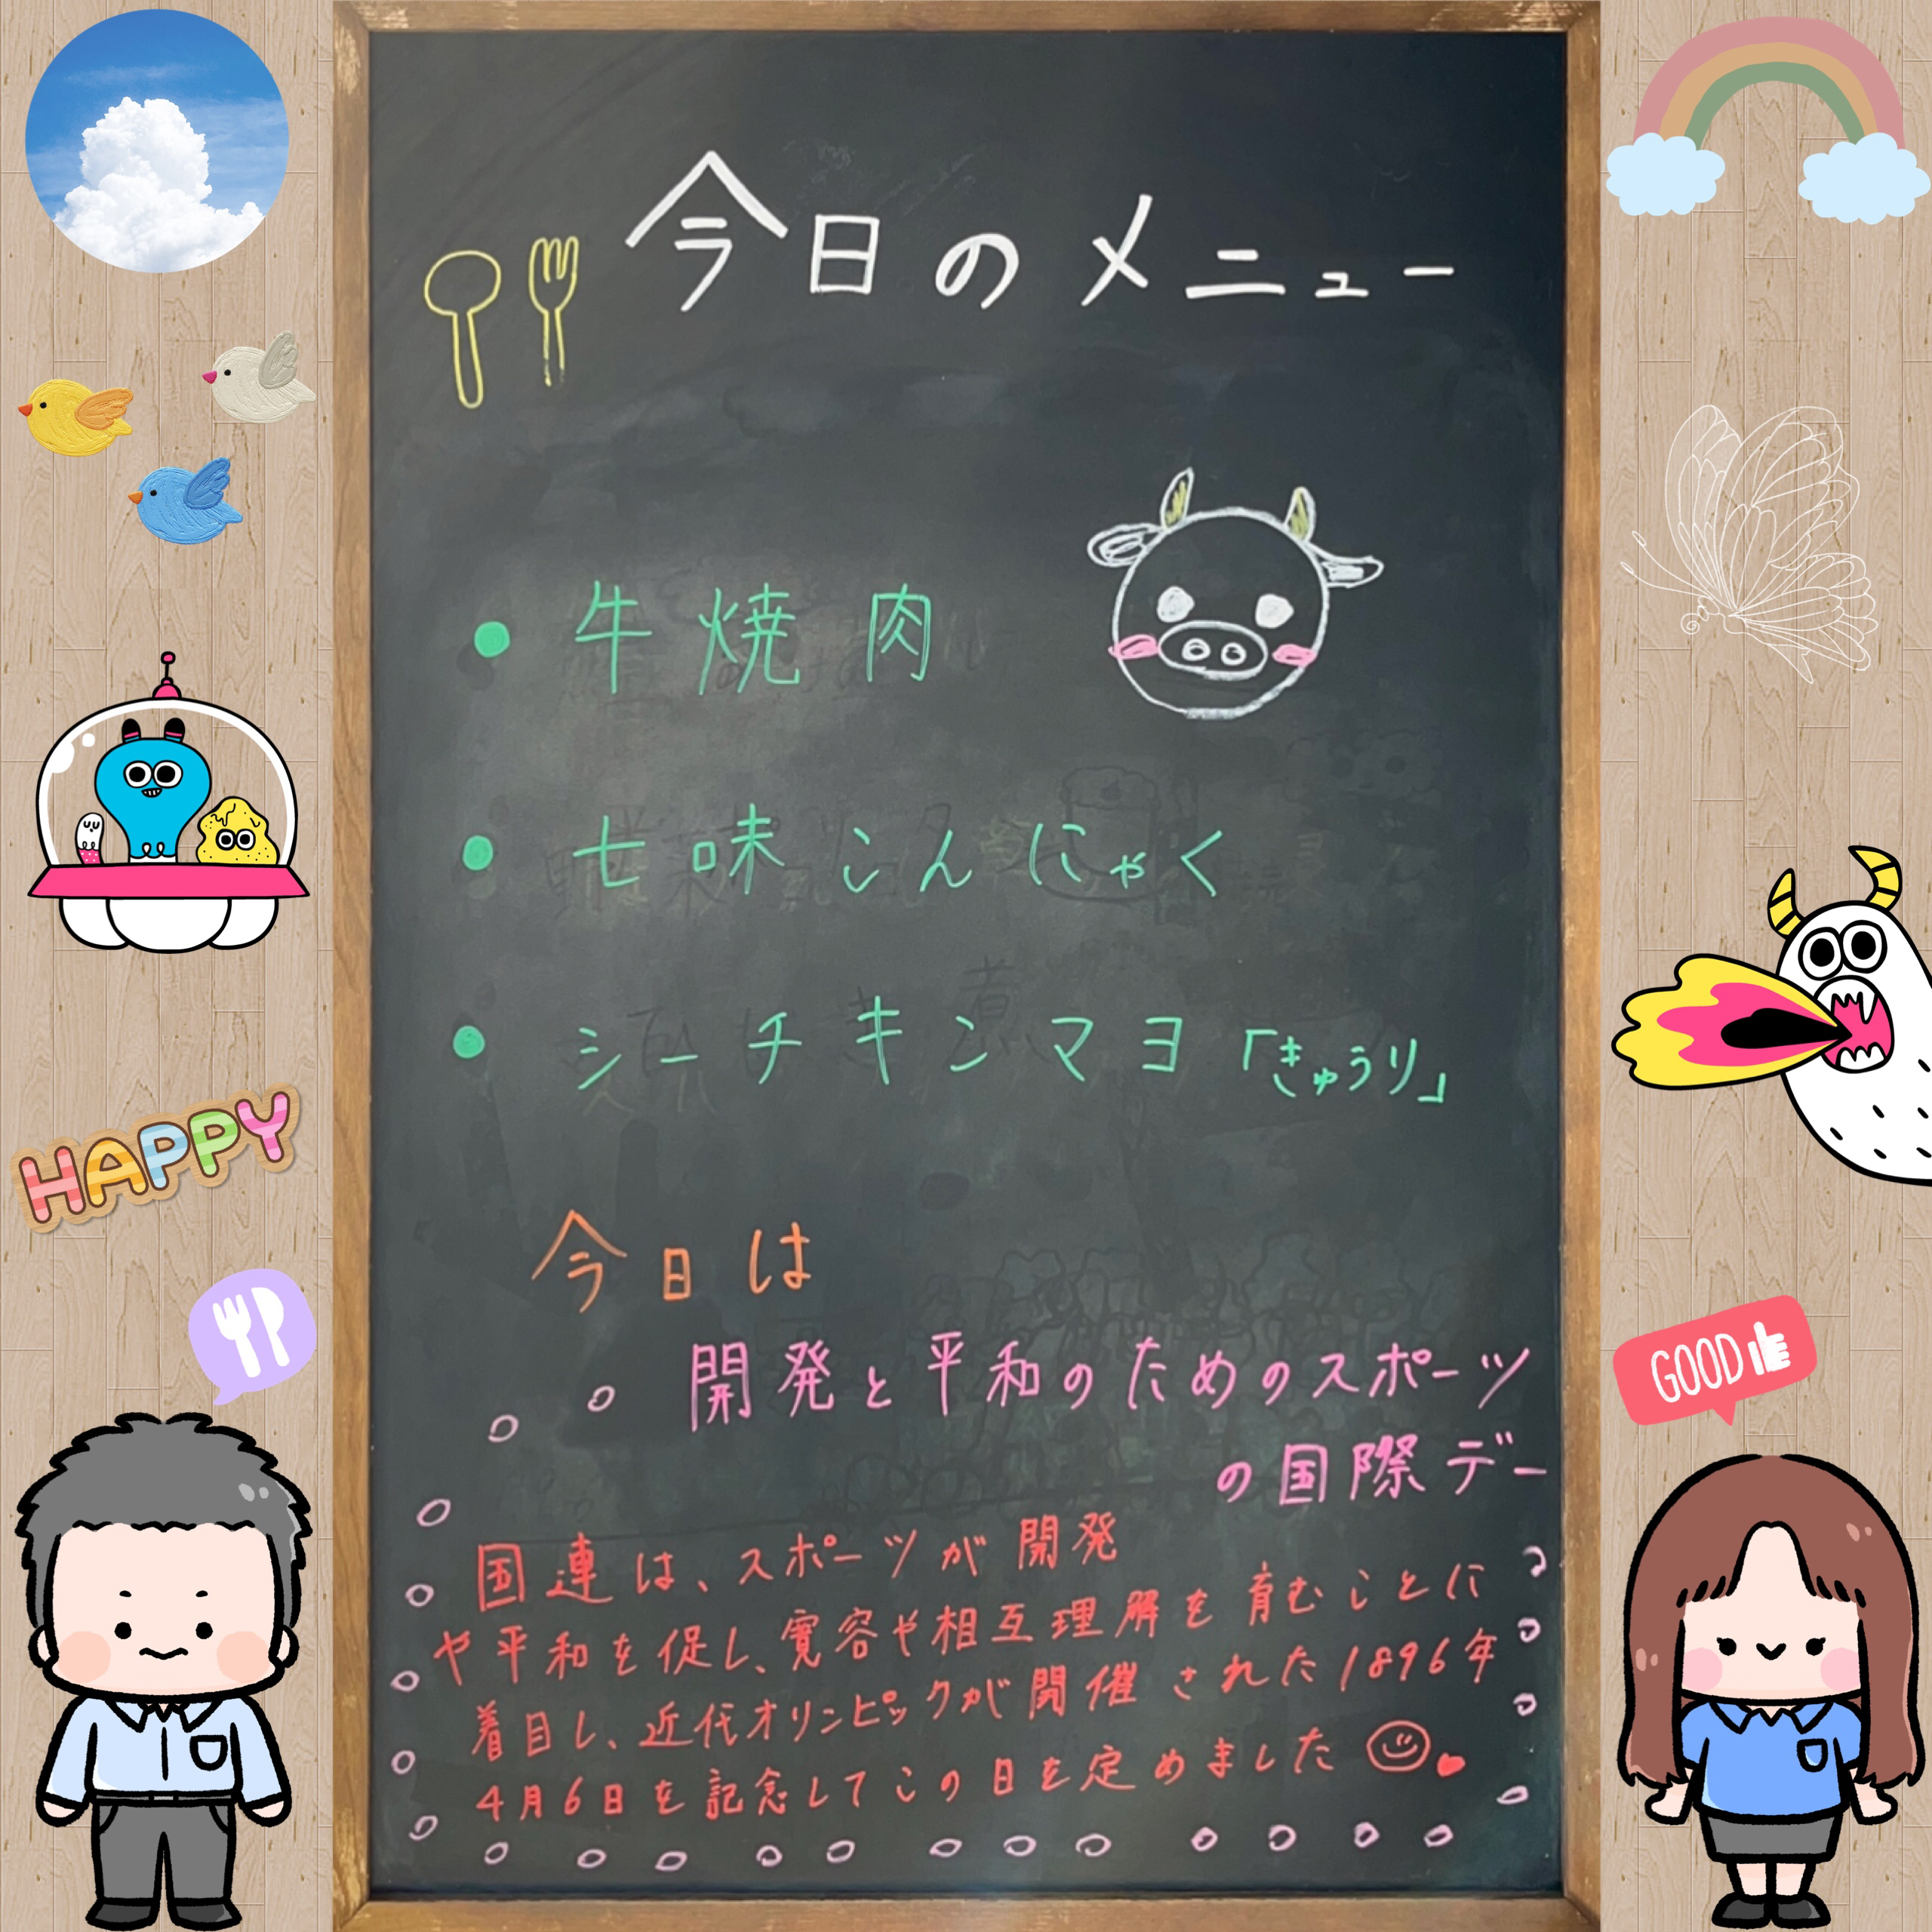 今日のメニュー
● 牛焼肉
● 七味こんにゃく
● シーチキンマヨ「きゅうり」
今日は
開発と平和のためのスポーツ
の国際デー
国連は、スポーツが開発
や平和を促し、寛容や相互理解を育むことに
着目し、近代オリンピックが開催された1896年
4月6日を記念してこの日を定めました
HAPPY
GOOD